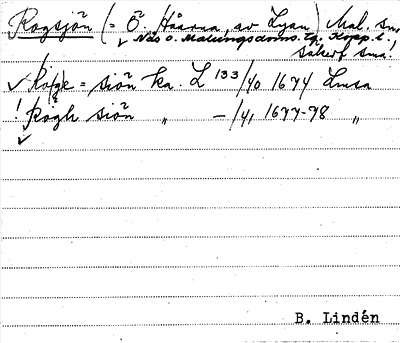 Rogsjön (= Ö. Håarna av Lyan) Mal. sn,
Näs o. Malungs doms. tg. Kopp. l.
säkert små!
✓ Rogk = siön ka. L 133/40 1674 Lmsa
! Rogh siön „ —/41 1677-78 „
✓
B. Lindén